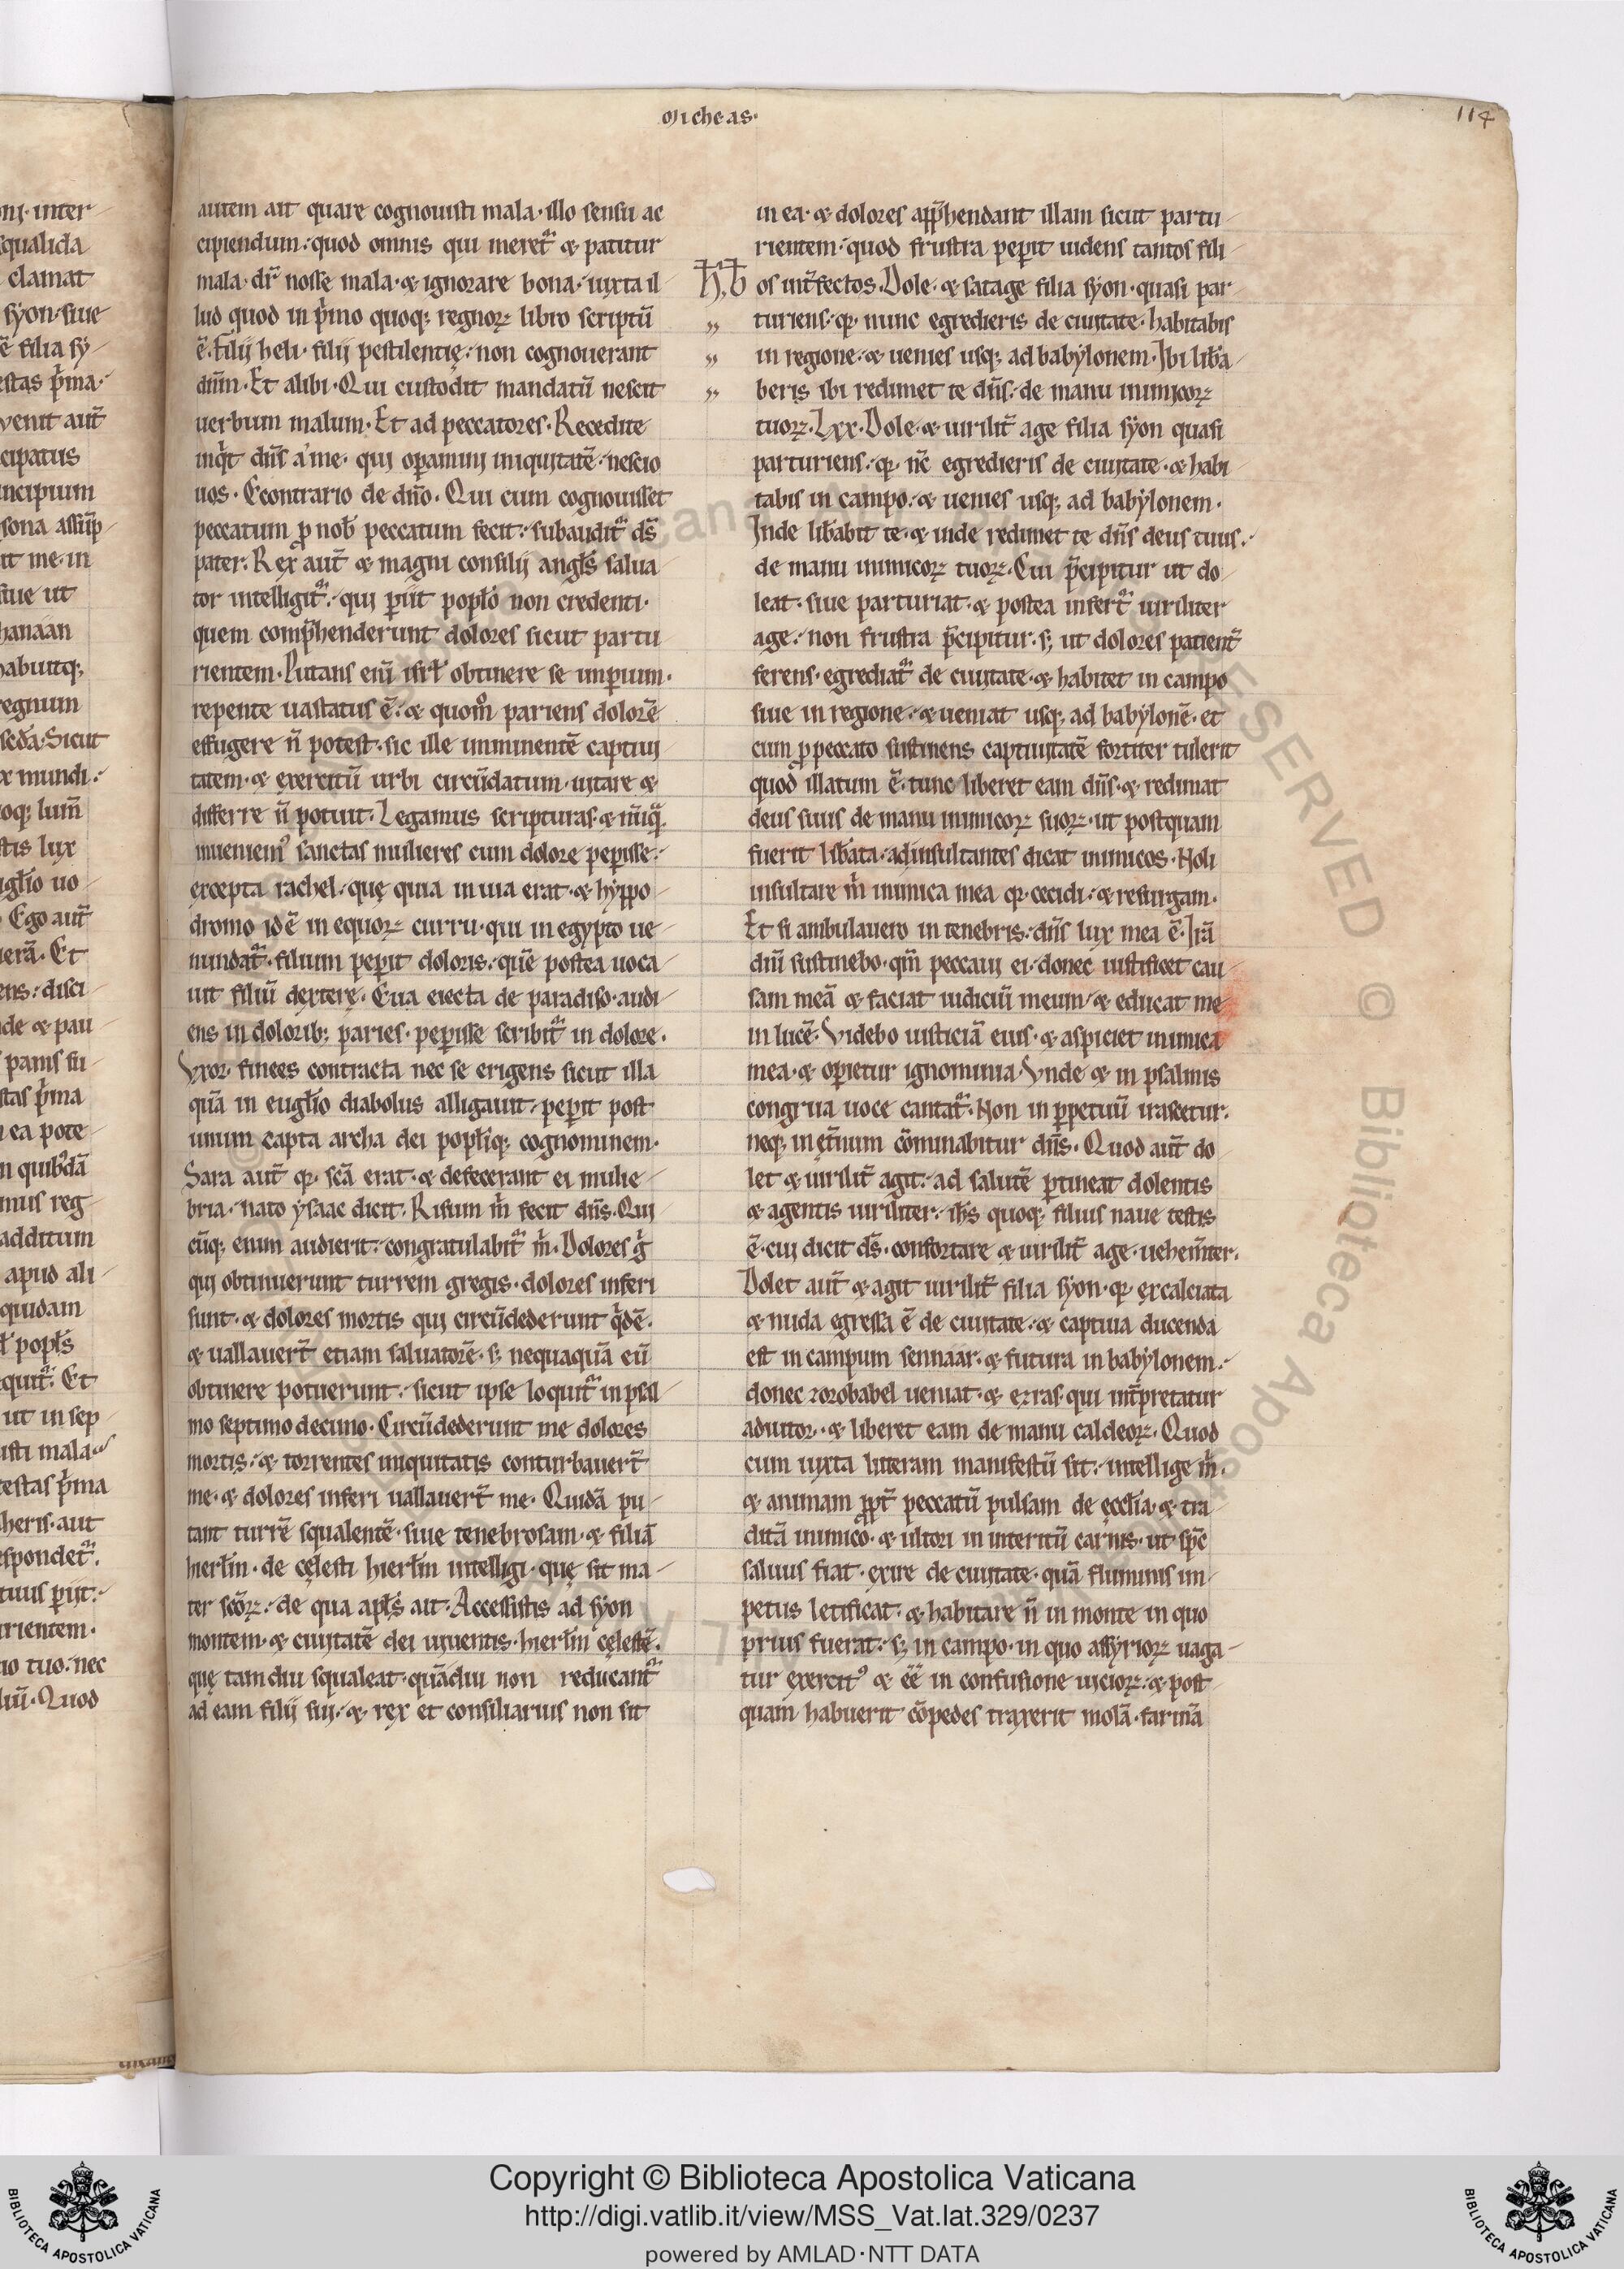 Micheas·
114
autem ait quare cognouisti mala· illo sensu ac
cipiendum· quod omnis qui meret᷑ & patitur
mala· dr̃ nosse mala· & ignorare bona· iuxta il
lud quod in p̃mo quoq; regnoꝝ libro scriptũ
ẽ· Filij heli· filij pestilentię· non cognouerant
dñm· Et alibi· Qui custodit mandatũ nescit
uerbum malum· Et ad peccatores· Recedite
inq̃t dñs a me· qui oꝑamini iniquitatẽ· nescio
uos· Econtrario de dño· Qui cum cognouisset
peccatum ꝓ nob̃ peccatum fecit· subaudit᷑ ds̃
pater· Rex aut̃ & magni consilij angl̃s salua
tor intelligit᷑· qui ꝑijt popl̃o non credenti·
quem comp̃henderunt dolores sicut partu
rientem· Putans eni᷑ isrl̃ obtinere se imꝑium·
repente uastatus ẽ· & quom̊ pariens dolorẽ
effugere ñ potest· sic ille imminentẽ captiui
tatem· & exercitũ urbi circũdatum· uitare &
differre ñ potuit· Legamus scripturas· & nũq̃
inueniem᷒ sanctas mulieres cum dolore peꝑisse·
excepta rachel· quę quia in uia erat· & hyppo
dromo id ẽ in equoꝝ curru· qui in egypto ue
nundat᷑· filium peꝑit doloris· quẽ postea uoca
uit filiũ dexterę· Eua eiecta de paradiso· audi
ens in dolorib; paries· peꝑisse scribit᷑ in dolore·
Vxor finees contracta nec se erigens sicut illa
quã in euglĩo diabolus alligauit· peꝑit post
unum capta archa dei popliq; cognominem·
Sara aut̃ q̃· sc̃a erat· & defecerant ei mulie
bria· nato ysaac dicit· Risum m̃ fecit dñs· Qui
cũq; enim audierit· congratulabit᷑ m̃· Dolores g̃
qui obtinuerunt turrem gregis· dolores inferi
sunt· & dolores mortis qui circũdederunt q̃dẽ·
& uallauer̃t etiam saluatorẽ· s; nequaquã eũ
obtinere potuerunt· sicut ipse loquit᷑ in psal
mo septimo decimo· Circũdederunt me dolores
mortis· & torrentes iniquitatis conturbauer̃t
me· & dolores inferi uallauer̃t me· Quidã pu
tant turrẽ squalentẽ· siue tenebrosam· & filiã
hierl̃m· de cęlesti hierl̃m intelligi· quę sit ma
ter sc̃oꝝ· de qua apl̃s ait· Accessistis ad syon
montem· & ciuitatẽ dei uiuentis· hierl̃m cęlestẽ·
quę tam diu squaleat· quãdiu non reducant᷑
ad eam filij sui· & rex et consiliarius non sit
in ea· & dolores app̃hendant illam sicut partu
rientem· quod frustra peꝑit uidens tantos fili
os int̃fectos· Dole· & satage filia syon· quasi par
turiens· q̃· nunc egredieris de ciuitate· habitabis
in regione· & uenies usq; ad babylonem· Ibi lib̃a
beris ibi redimet te dñs· de manu inimicoꝝ
tuoꝝ· Lxx· Dole· & uirilit̃ age filia syon quasi
parturiens· q̃· nc̃ egredieris de ciuitate· & habi
tabis in campo· & uenies usq; ad babylonem·
Inde lib̃abit te· & inde redimet te dñs deus tuus·
de manu inimicoꝝ tuoꝝ· Cui p̃cipitur ut do
leat· siue parturiat· & postea infert᷑ uiriliter
age· non frustra p̃cipitur· s; ut dolores patient̃
ferens· egrediat᷑ de ciuitate· & habitet in campo
siue in regione· & ueniat usq; ad babylonẽ· et
cum ꝓ peccato sustinens captiuitatẽ fortiter tulerit
quod illatum ẽ· tunc liberet eam dñs· & redimat
deus suus de manu inimicoꝝ suoꝝ· ut postquam
fuerit lib̃ata· ad insultantes dicat inimicos· Noli
insultare m̃ inimica mea q̃· cecidi· & resurgam·
Et si ambulauero in tenebris· dñs lux mea ẽ· Irã
dñi sustinebo· qm̃ peccaui ei· donec iustificet cau
sam meã & faciat iudiciũ meum· & educat me
in lucẽ· Videbo iusticiã eius· & aspiciet inimica
mea· & oꝑietur ignominia· Vnde & in psalmis
congrua uoce cantat᷑· Non in ꝑpetuũ irascetur·
neq; in ęt̃num cõminabitur dñs· Quod aut̃ do
let & uirilit̃ agit· ad salutẽ ꝑtineat dolentis
& agentis uiriliter· ih̃s quoq; filius naue testis
ẽ· cui dicit ds̃· confortare & uirilit̃ age· uehem̃ter·
Dolet aut̃ & agit uirilit̃ filia syon· q̃· excalciata
& nuda egressa ẽ de ciuitate· & captiua ducenda
est in campum sennaar· & futura in babylonem·
donec zorobabel ueniat· & ezras· qui int̃pretatur
adiutor· & liberet eam de manu caldeoꝝ· Quod
cum iuxta literam manifestũ sit· intellige m̃·
& animam ꝓpt̃ peccatũ pulsam de ęccl̃ia· & tra
ditã inimico· & ultori in interitũ carnis· ut sp̃c
saluus fiat· exire de ciuitate· quã fluminis im
petus letificat· & habitare ñ in monte in quo
prius fuerat· s; in campo· in quo assyrioꝝ uaga
tur exercit᷒ & eẽ in confusione uicioꝝ· & post
quam habuerit cõpedes traxerit molã· farinã
Copyright © Biblioteca Apostolica Vaticana
http://digi.vatlib.it/view/MSS_Vat.lat.329/0237
powered by AMLAD·NTT DATA
BIBLIOTECA APOSTOLICA VATICANA
BIBLIOTECA APOSTOLICA VATICANA